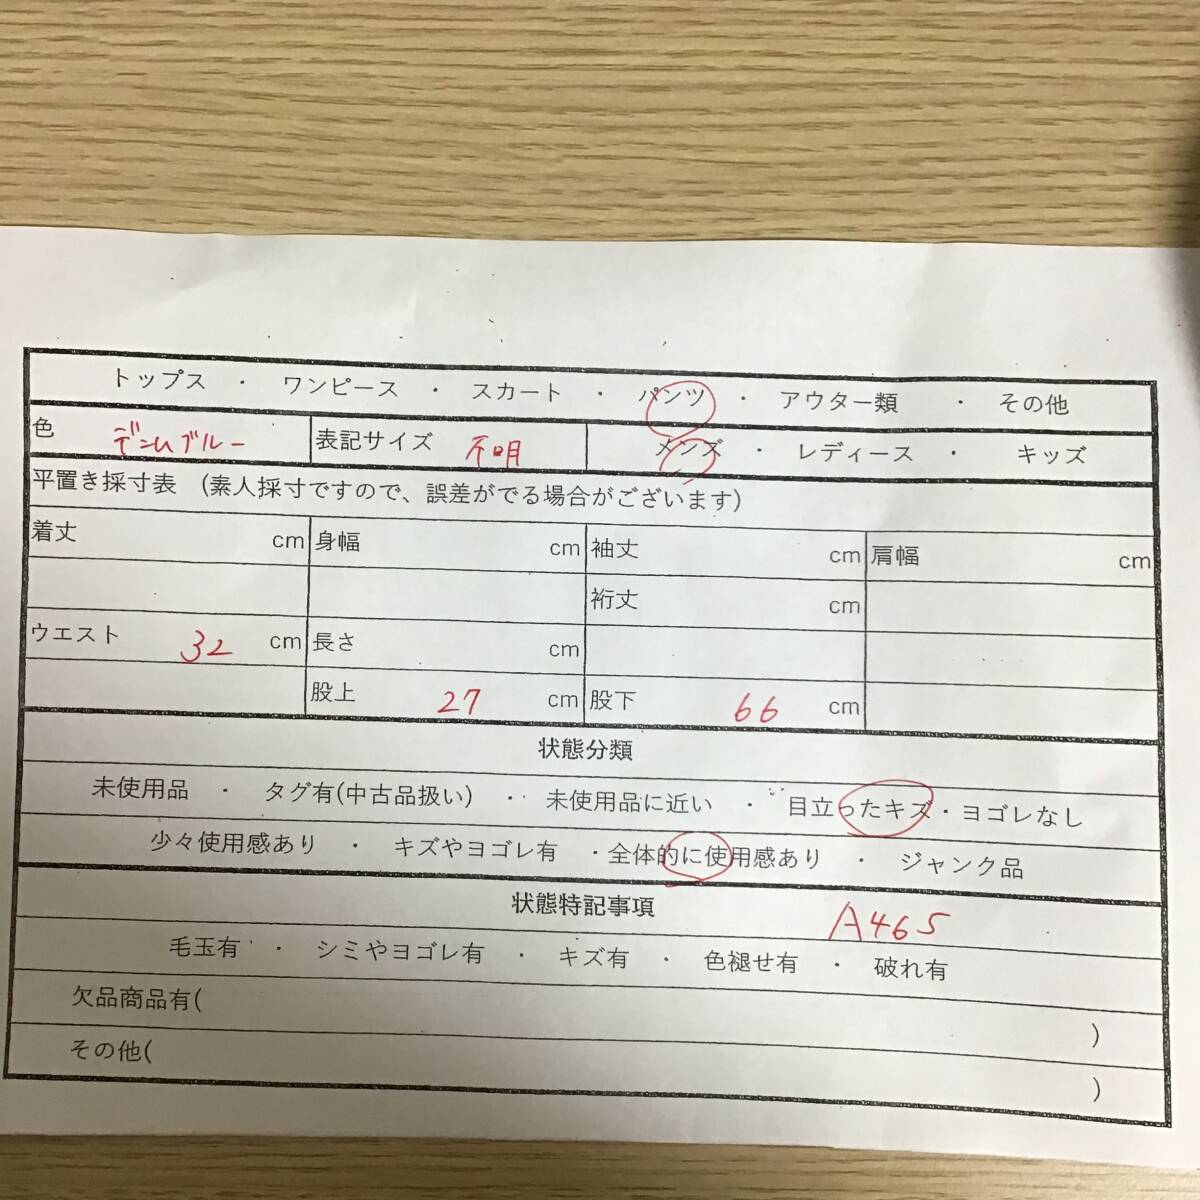 トップス ・ ワンピース ・ スカート ・ パンツ ・ アウター類 ・ その他
色 デニムブルー 表記サイズ 不明 メンズ ・ レディース ・ キッズ
平置き採寸表 (素人採寸ですので、誤差がでる場合がございます)
着丈 cm 身幅 cm 袖丈 cm 肩幅 cm
裄丈 cm
ウエスト 32 cm 長さ cm
股上 27 cm 股下 66 cm
状態分類
未使用品 ・ タグ有(中古品扱い) ・ 未使用品に近い ・ 目立ったキズ・ヨゴレなし
少々使用感あり ・ キズやヨゴレ有 ・全体的に使用感あり ・ ジャンク品
状態特記事項 A465
毛玉有 ・ シミやヨゴレ有 ・ キズ有 ・ 色褪せ有 ・ 破れ有
欠品商品有( )
その他( )